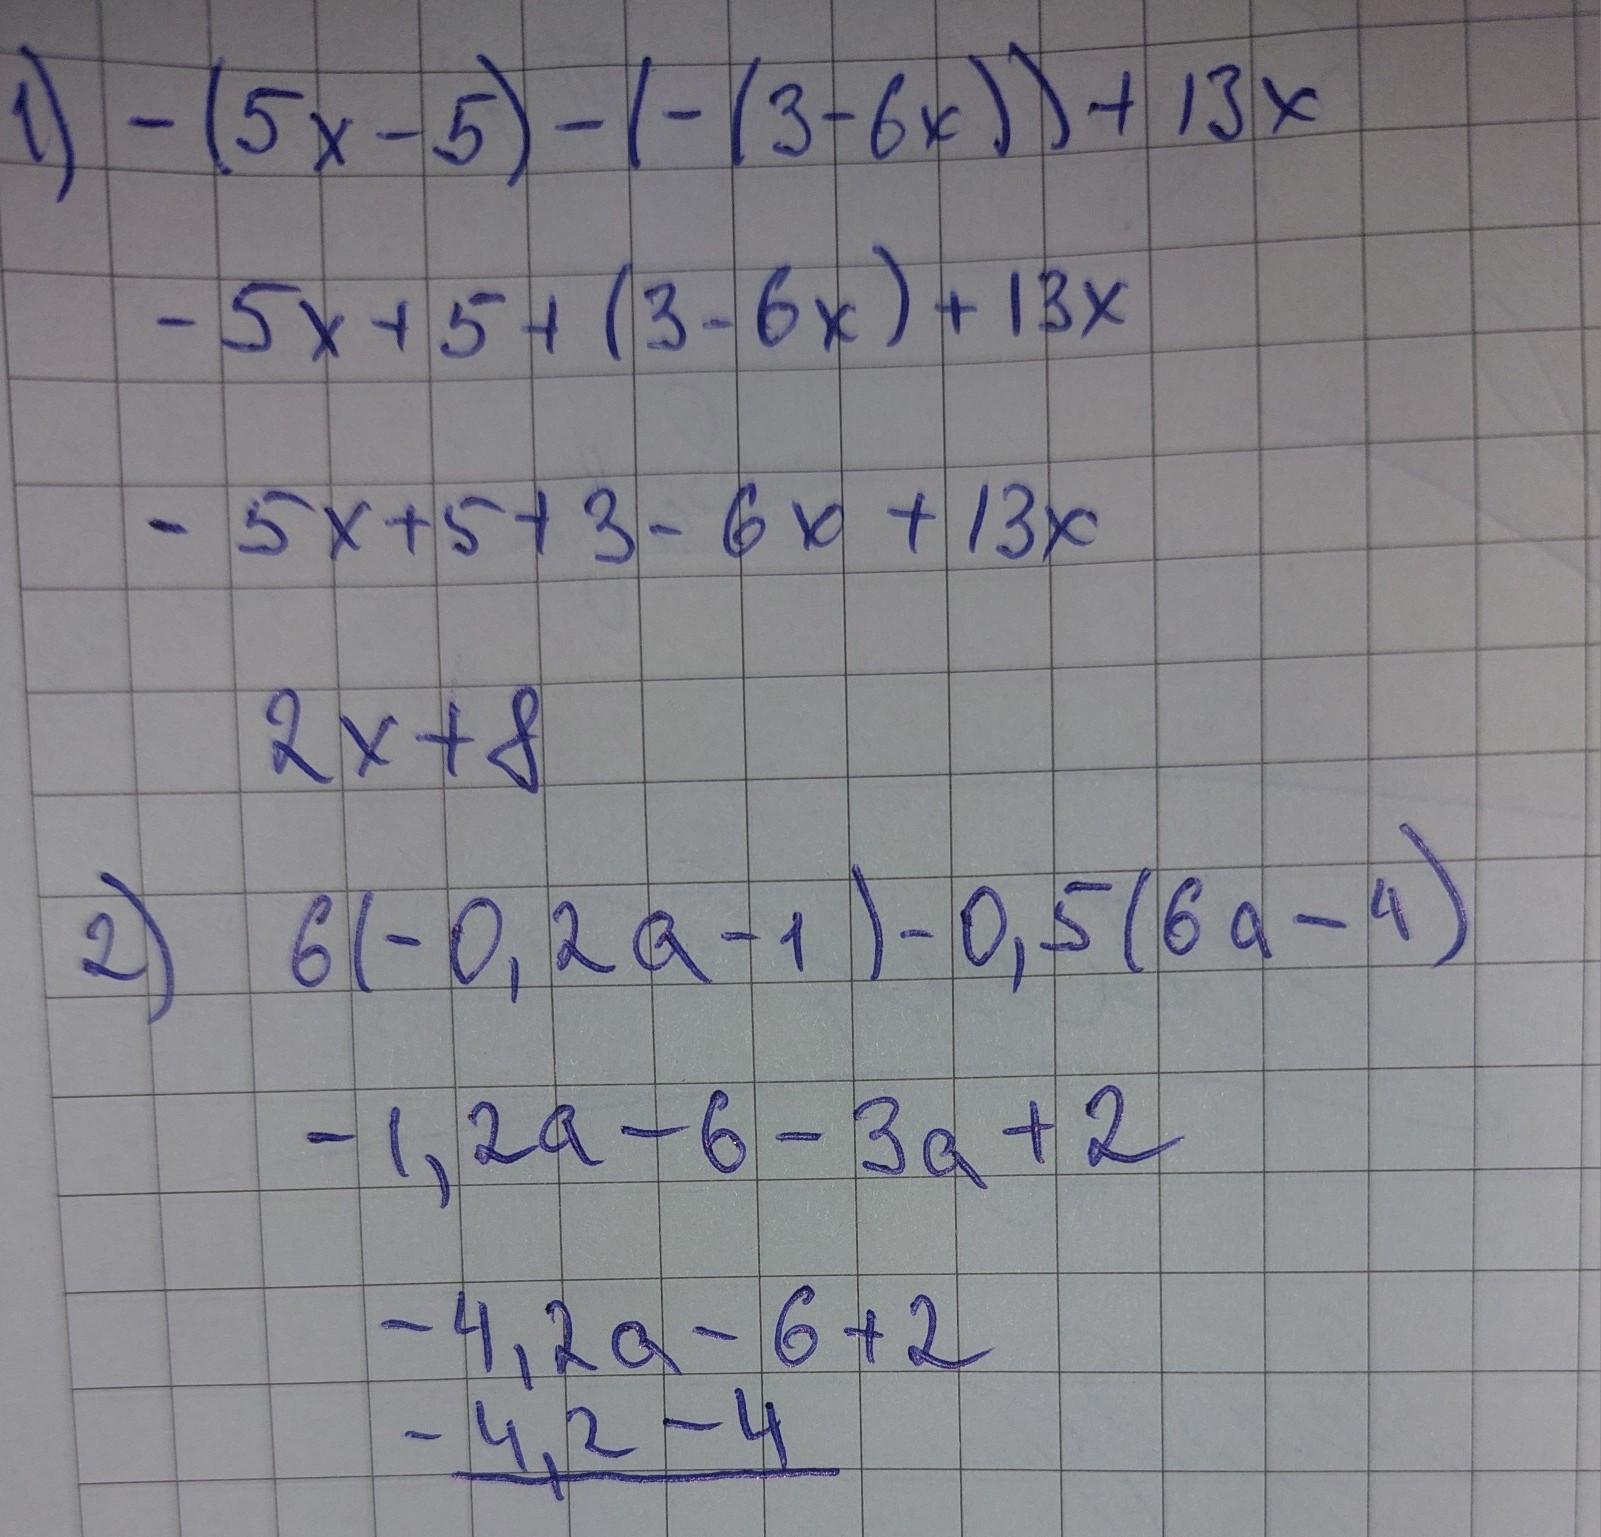 1) -(5x-5)-(-(3-6x))+13x
-5x+5+(3-6x)+13x
-5x+5+3-6x+13x
2x+8
2) 6(-0,2a-1)-0,5(6a-4)
-1,2a-6-3a+2
-4,2a-6+2
-4,2-4